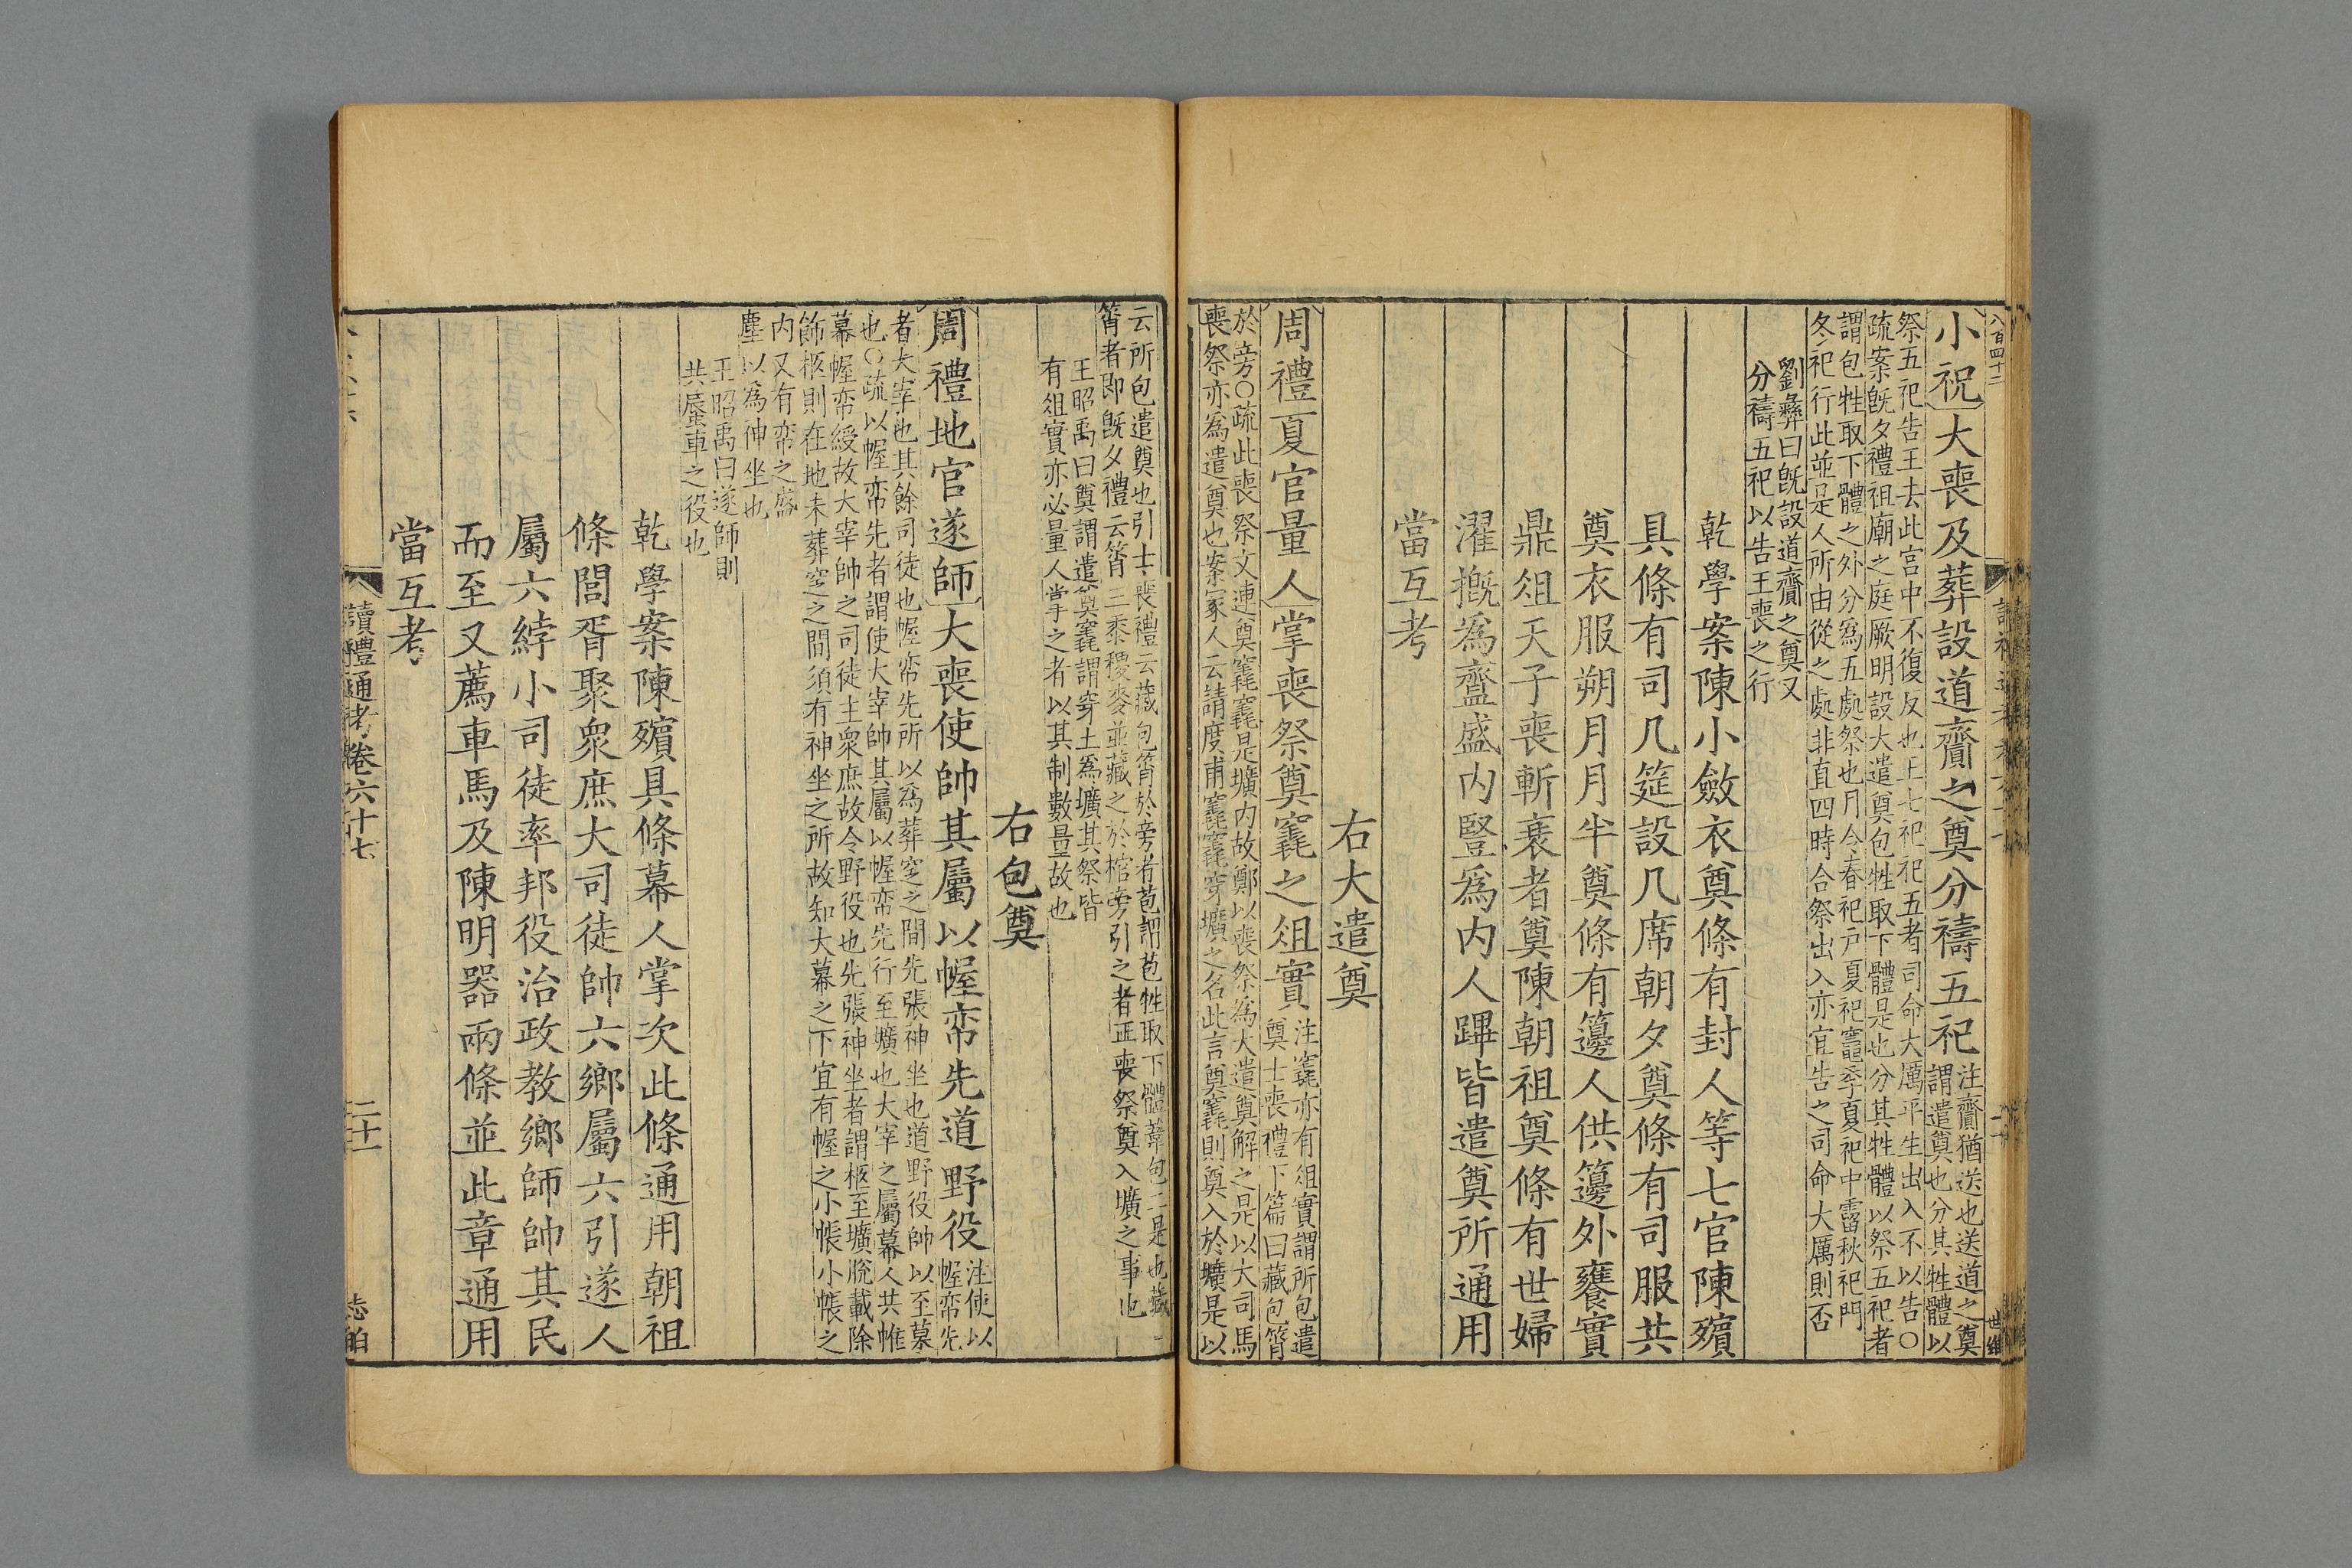 八百四十二
世維
小祝大喪及葬設道齎之奠分禱五祀注齎猶送也送道之奠
謂遣奠也分其牲體以
祭五祀告王去此宮中不復反也王七祀祀五者司命大厲平生出入不以告○
疏案旣夕禮祖廟之庭厥明設大遣奠包牲取下體是也分其牲體以祭五祀者
謂包牲取下體之外分爲五處祭也月令春祀戶夏祀竈季夏祀中霤秋祀門
冬祀行此並是人所由從之處非直四時合祭出入亦宜告之司命大厲則否
劉彝曰旣設道齎之奠又
分禱五祀以告王喪之行
乾學案陳小斂衣奠條有封人等七官陳殯
具條有司几筵設几席朝夕奠條有司服共
奠衣服朔月月半奠條有籩人供籩外饔實
鼎俎天子喪斬衰者奠陳朝祖奠條有世婦
濯摡爲齍盛内豎爲内人蹕皆遣奠所通用
當互考
右大遣奠
周禮夏官量人掌喪祭奠竁之俎實注竁亦有俎實謂所包遣
奠士喪禮下篇曰藏包筲
於旁○疏此喪祭文連奠竁竁是壙内故鄭以喪祭為大遣奠解之是以大司馬
喪祭亦爲遣奠也案冢人云請度甫竁竁穿壙之名此言奠竁則奠入於壙是以
云所包遣奠也引士喪禮云藏包筲於旁者苞謂苞牲取下體葦包二是也藏
筲者即旣夕禮云筲三黍稷麥並藏之於棺旁引之者証喪祭奠入壙之事也
王昭禹曰奠謂遣奠竁謂穿土爲壙其祭皆
有俎實亦必量人掌之者以其制數量故也
右包奠
周禮地官遂師大喪使帥其屬以幄帟先道野役注使以
幄帟先
者大宰也其餘司徒也幄帟先所以為葬窆之間先張神坐也道野役帥以至墓
也○疏以幄帟先者謂使大宰帥其屬以幄帟先行至壙也大宰之屬幕人共帷
幕幄帟綬故大宰帥之司徒主衆庶故令野役也先張神坐者謂柩至壙脫載除
飾柩則在地未葬窆之間須有神坐之所故知大幕之下宜有幄之小帳小帳之
内又有帟之盛
塵以為伸坐也
王昭禹曰遂師則
共蜃車之役也
乾學案陳殯具條幕人掌次此條通用朝祖
條閭胥聚衆庶大司徒帥六鄉屬六引遂人
屬六綍小司徒率邦役治政教鄉師帥其民
而至又薦車馬及陳明器兩條並此章通用
當互考
讀禮通考卷六十七
二十一